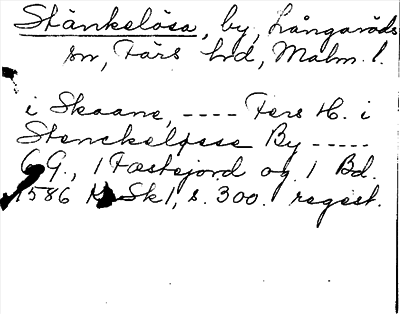 Stänkelösa, by, Långaröds
sn, Färs hd, Malm. l.
i Skaane, ---- Fers H. i
Stenckeløsse By -----
6 G., 1 Fæstejord og 1 Bd.
1586 K Sk 1, s. 300. regest.